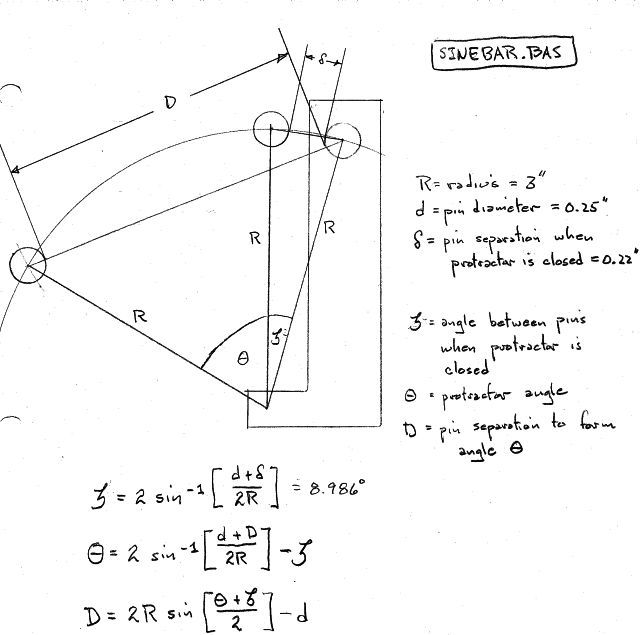 SINEBAR.BAS
δ
D
R
R
R
θ
ζ
R = radius = 3"
d = pin diameter = 0.25"
δ = pin separation when
protractor is closed = 0.22"
ζ = angle between pins
when protractor is
closed
θ = protractor angle
D = pin separation to form
angle θ
ζ = 2 sin⁻¹ [ (d+δ)/2R ] = 8.986°
θ = 2 sin⁻¹ [ (d+D)/2R ] - ζ
D = 2R sin [ (θ+ζ)/2 ] - d